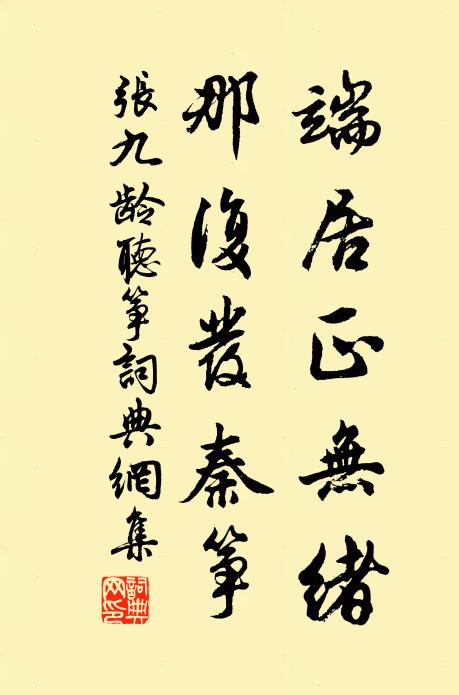 端居正無緒
那復發秦箏
張九齡聽箏詞典網集
詞典網印